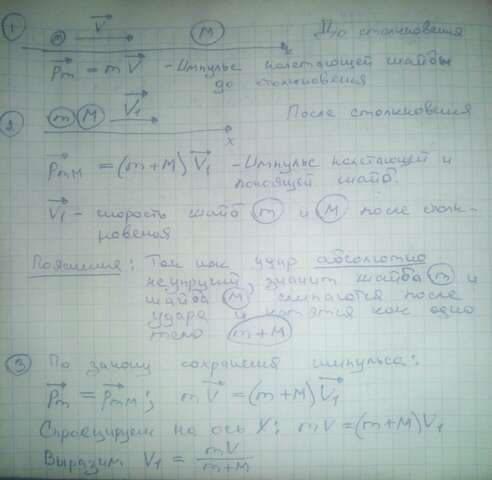 1 m V⃗ M x До столкновения
P⃗m = mV⃗ - Импульс налетающей шайбы
до столкновения
2 m M V⃗1 x После столкновения
P⃗mM = (m+M) V⃗1 - Импульс налетающей и
покоящей шайб.
V⃗1 - скорость шайб m и M после стол-
кновения
Пояснения: Так как удар абсолютно
неупругий, значит шайба m и
шайба M слипаются после
удара и катятся как одно
тело m+M
3 По закону сохранения импульса:
P⃗m = P⃗mM; mV⃗ = (m+M)V⃗1
Спроецируем на ось X: mV = (m+M)V1
Выразим V1 = mV/(m+M)